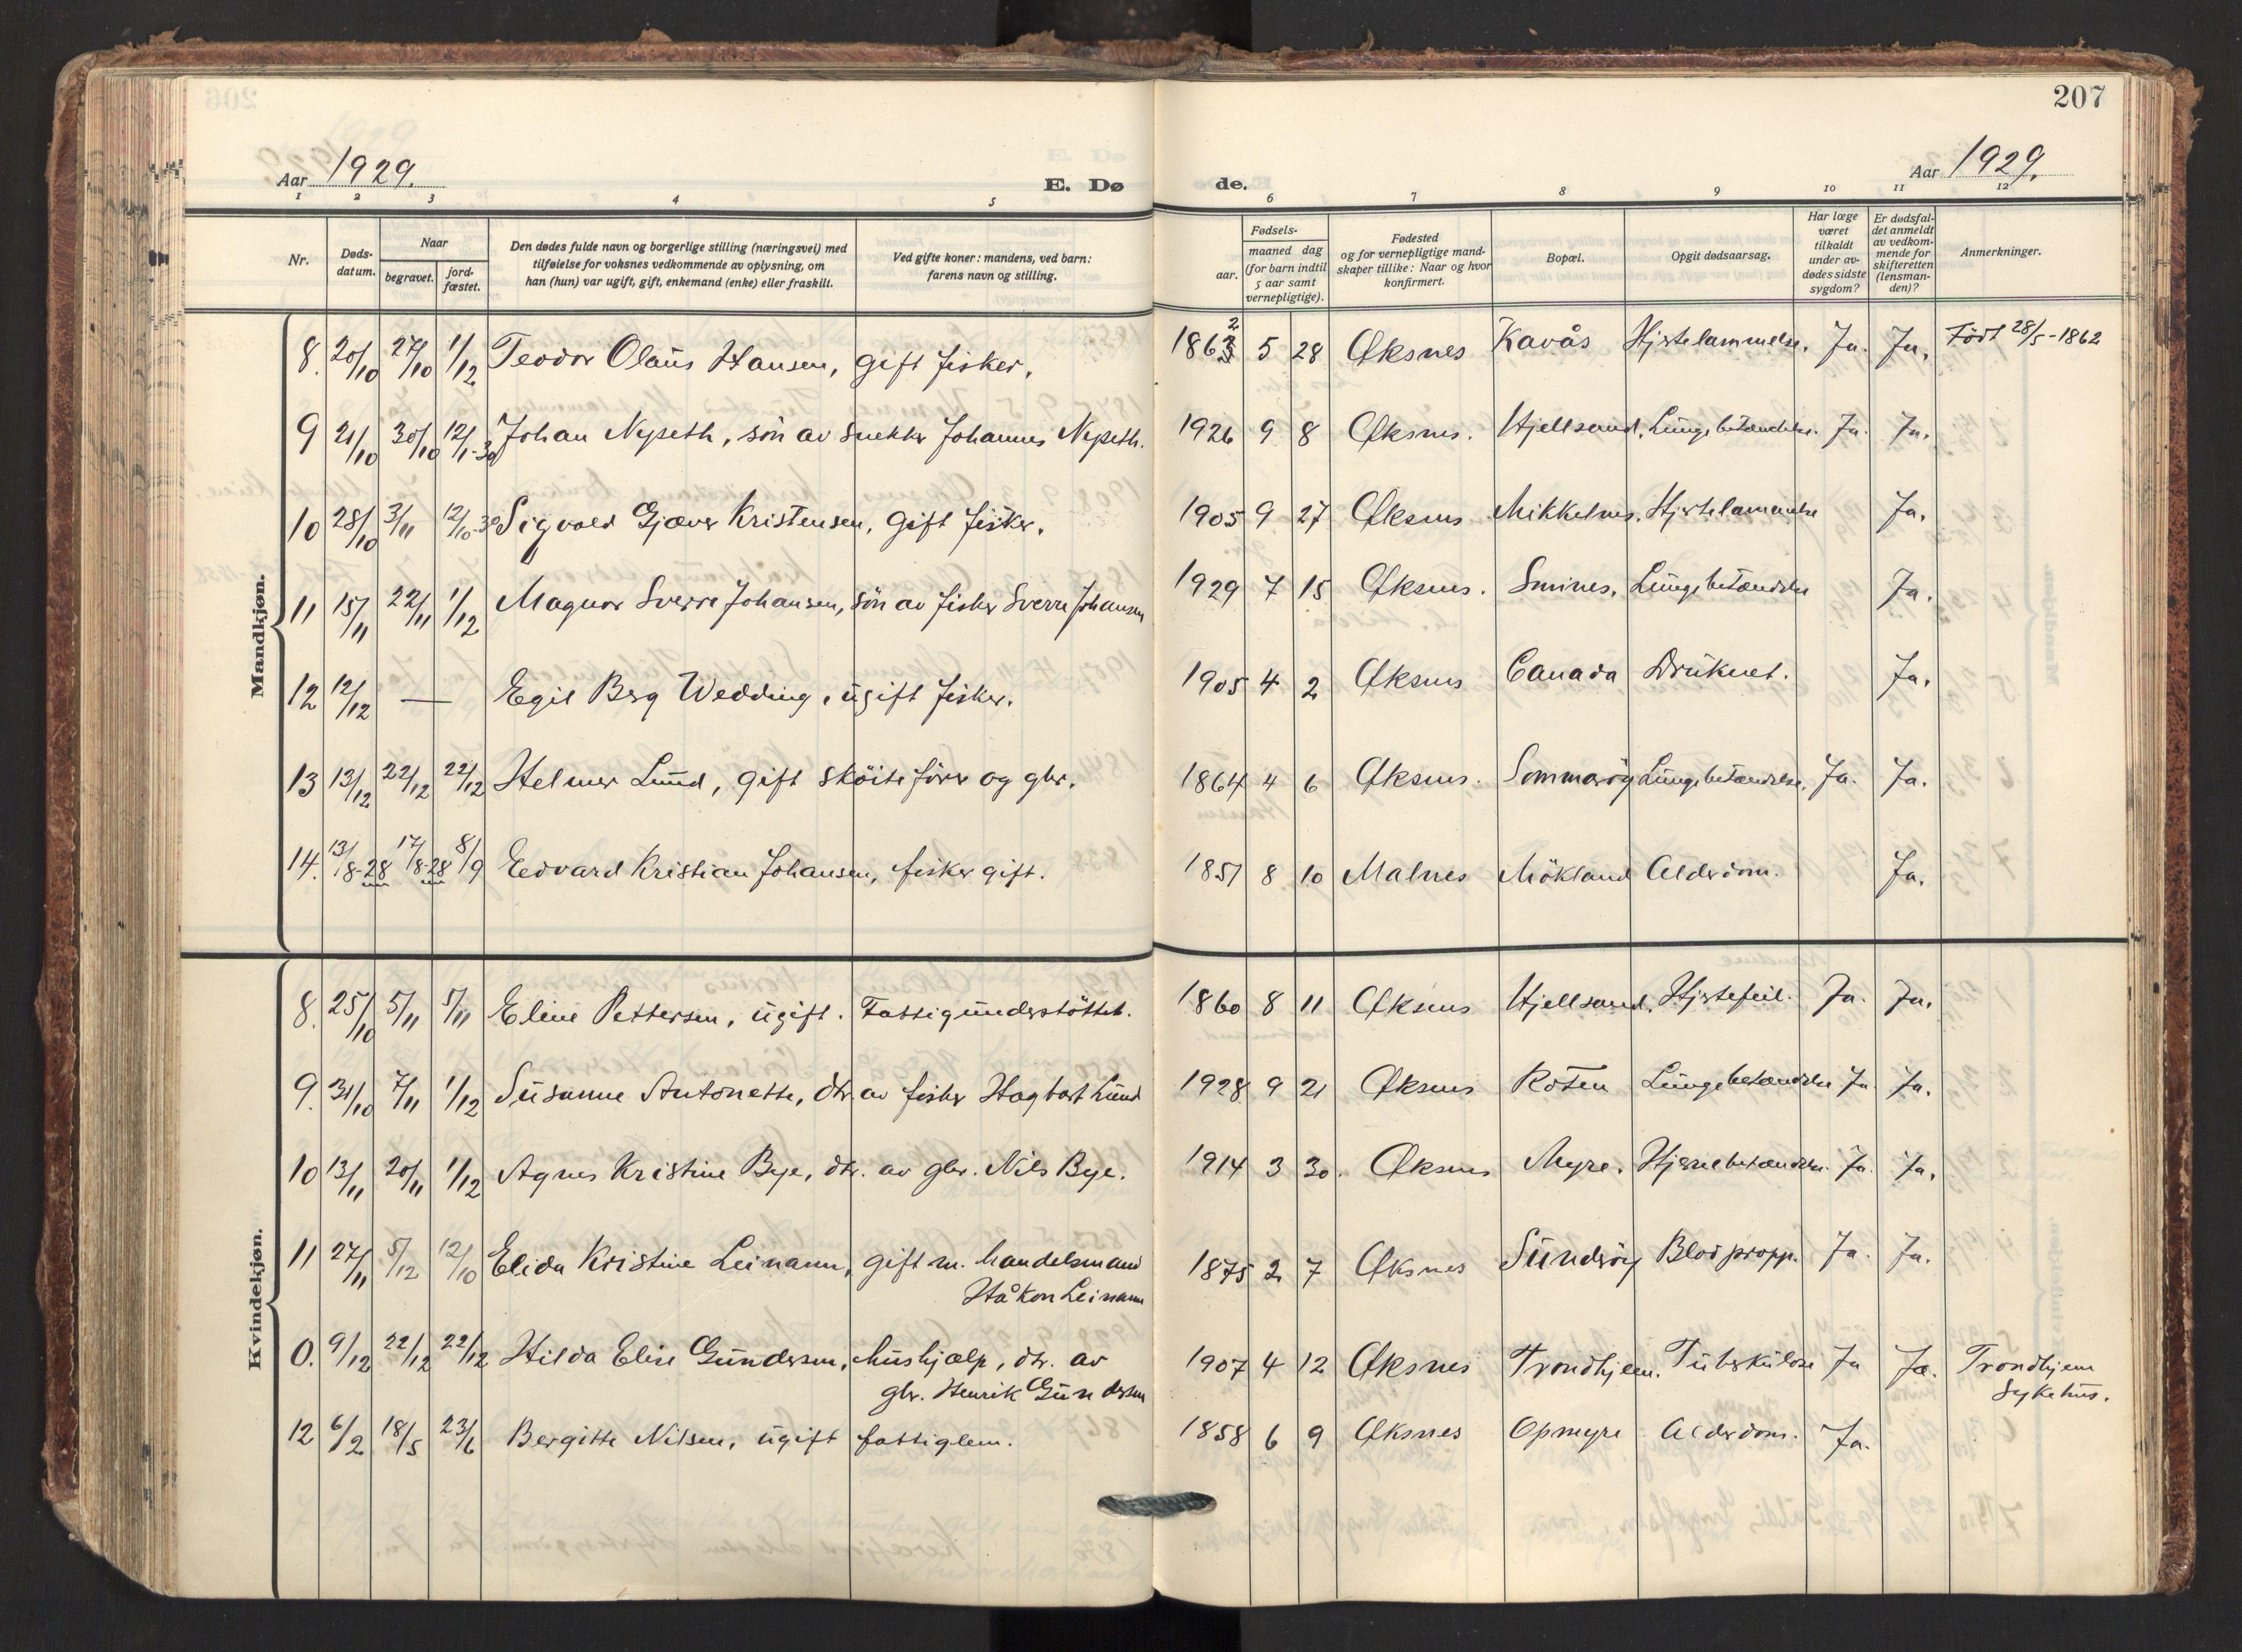 207
Aar 1929.
E. Dø
de.
Aar 1929.
1 2 3 4 5 6 7 8 9 10 11 12
Nr.
Døds-
datum.
Naar
begravet.
jord-
fæstet.
Den dødes fulde navn og borgerlige stilling (næringsvei) med
tilføielse for voksnes vedkommende av oplysning, om
han (hun) var ugift, gift, enkemand (enke) eller fraskilt.
Ved gifte koner: mandens, ved barn:
farens navn og stilling.
Fødsels-
aar.
maaned dag
(for barn indtil
5 aar samt
vernepligtige).
Fødested
og for vernepligtige mand-
skaper tillike: Naar og hvor
konfirmert.
Bopæl.
Opgit dødsaarsag.
Har læge
været
tilkaldt
under av-
dødes sidste
sygdom?
Er dødsfal-
det anmeldt
av vedkom-
mende for
skifteretten
(lensman-
den)?
Anmerkninger.
Mandkjøn.
8. 20/10 27/10 1/12 Teodor Olaüs Hansen, gift fisker. 1862 5 28 Øksnes Kavås Hjertelammelse. Ja. Ja. Født 28/5-1862
9 21/10 30/10 12/1-30 Johan Nyseth, søn av snekker Johannes Nyseth. 1926 9 8 Øksnes. Hjellsand. Lüngebetændelse. Ja. Ja.
10 28/10 3/11 12/10-30 Sigvald Gjæver Kristensen, gift fisker. 1905 9 27 Øksnes Mikkelnes. Hjertelammelse Ja.
11 15/11 22/11 1/12 Magnor Sverre Johansen, søn av fisker Sverre Johansen 1929 7 15 Øksnes. Smines. Lüngebetændelse Ja.
12 12/12 — Egil Berg Wedding, ügift fisker. 1905 4 2 Øksnes Canada Drüknet. Ja.
13 13/12 22/12 22/12 Helmer Lünd, gift skøitefører og gbr. 1864 4 6 Øksnes. Sommerøy Lüngebetændelse. Ja. Ja.
14. 13/8-28 17/8-28 8/9 Edvard Kristian Johansen, fisker gift. 1851 8 10 Malnes Møkland Alderdom. Ja.
Kvindekjøn.
8. 25/10 5/11 5/11 Eline Pettersen, ügift. Fattigünderstøttet. 1860 8 11 Øksnes Hjellsand. Hjertefeil. Ja. Ja.
9. 31/10 7/11 1/12 Süsanne Antonette, dtr. av fisker Hagbart Lünd 1928 9 21 Øksnes Roten Lüngebetændelse Ja. Ja.
10 13/11 20/11 1/12 Agnes Kristine Bye, dtr. av gbr. Nils Bye. 1914 3 30. Øksnes Myre. Hjernebetændelse. Ja. Ja.
11 27/11 5/12 12/10 Elida Kristine Leinann, gift m. handelsmand
Håkon Leinann
1875 2 7 Øksnes Sünderøy Blodpropp. Ja. Ja.
0. 9/12 22/12 22/12 Hilda Elise Gündersen, hüshjælp, dtr. av
gbr. Henrik Gündersen
1907 4 12 Øksnes Trondhjem. Tüberkülose Ja Ja. Trondhjem
Sykehüs.
12 6/2 18/5 23/6 Bergitte Nilsen, ügift fattiglem. 1858 6 9 Øksnes Opmyre Alderdom. Ja.